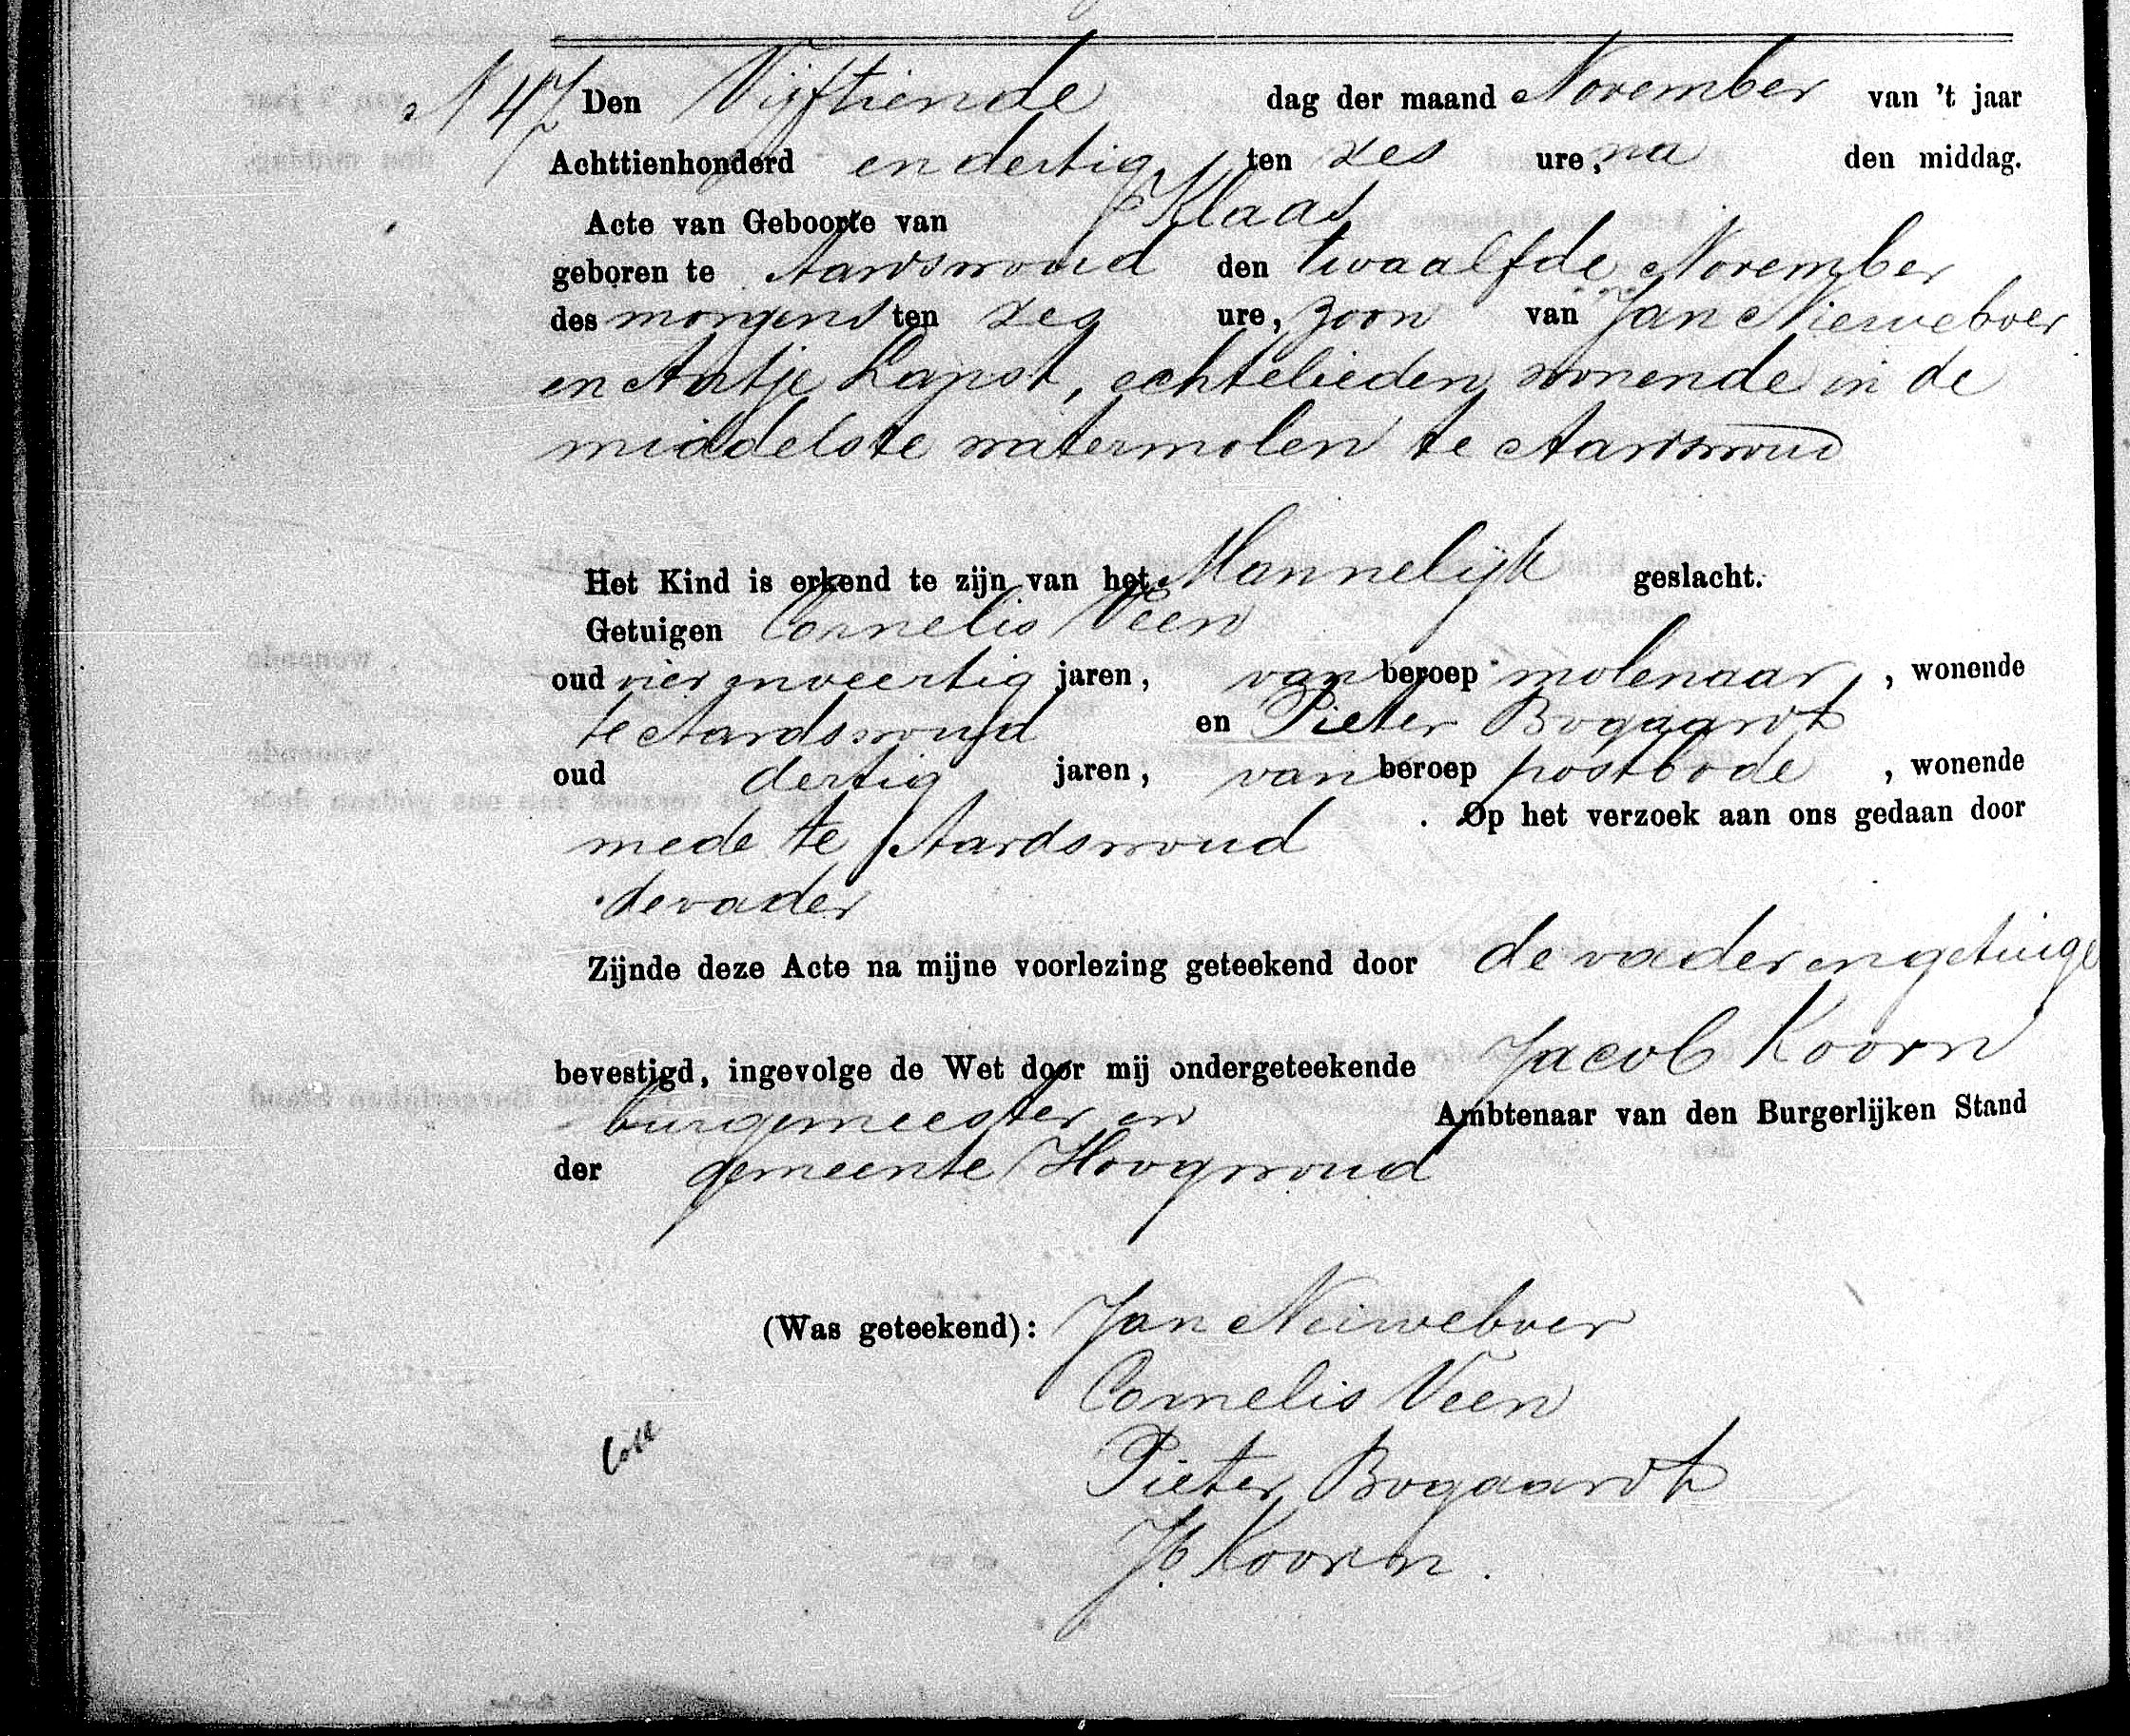 N 47 Den Vijftiende dag der maand November van 't jaar
Achttienhonderd en dertig ten zes ure, na den middag.
Acte van Geboorte van Klaas
geboren te Aardswoud den twaalfde November
des morgens ten zes ure, zoon van Jan Nieweboer
en Antje Lapst, echtelieden, wonende in de
middelste watermolen te Aardswoud
Het Kind is erkend te zijn van het Mannelijk geslacht.
Getuigen Cornelis Veen
oud vier en veertig jaren, van beroep molenaar, wonende
te Aardswoud en Pieter Bogaardt
oud dertig jaren, van beroep postbode, wonende
mede te Aardswoud. Op het verzoek aan ons gedaan door
de vader
Zijnde deze Acte na mijne voorlezing geteekend door de vader en getuige
bevestigd, ingevolge de Wet door mij ondergeteekende Jacob Koorn
burgemeester en Ambtenaar van den Burgerlijken Stand
der gemeente Hoogwoud
(Was geteekend): Jan Neiweboer
Cornelis Veen
Pieter Bogaardt
Jb. Koorn.